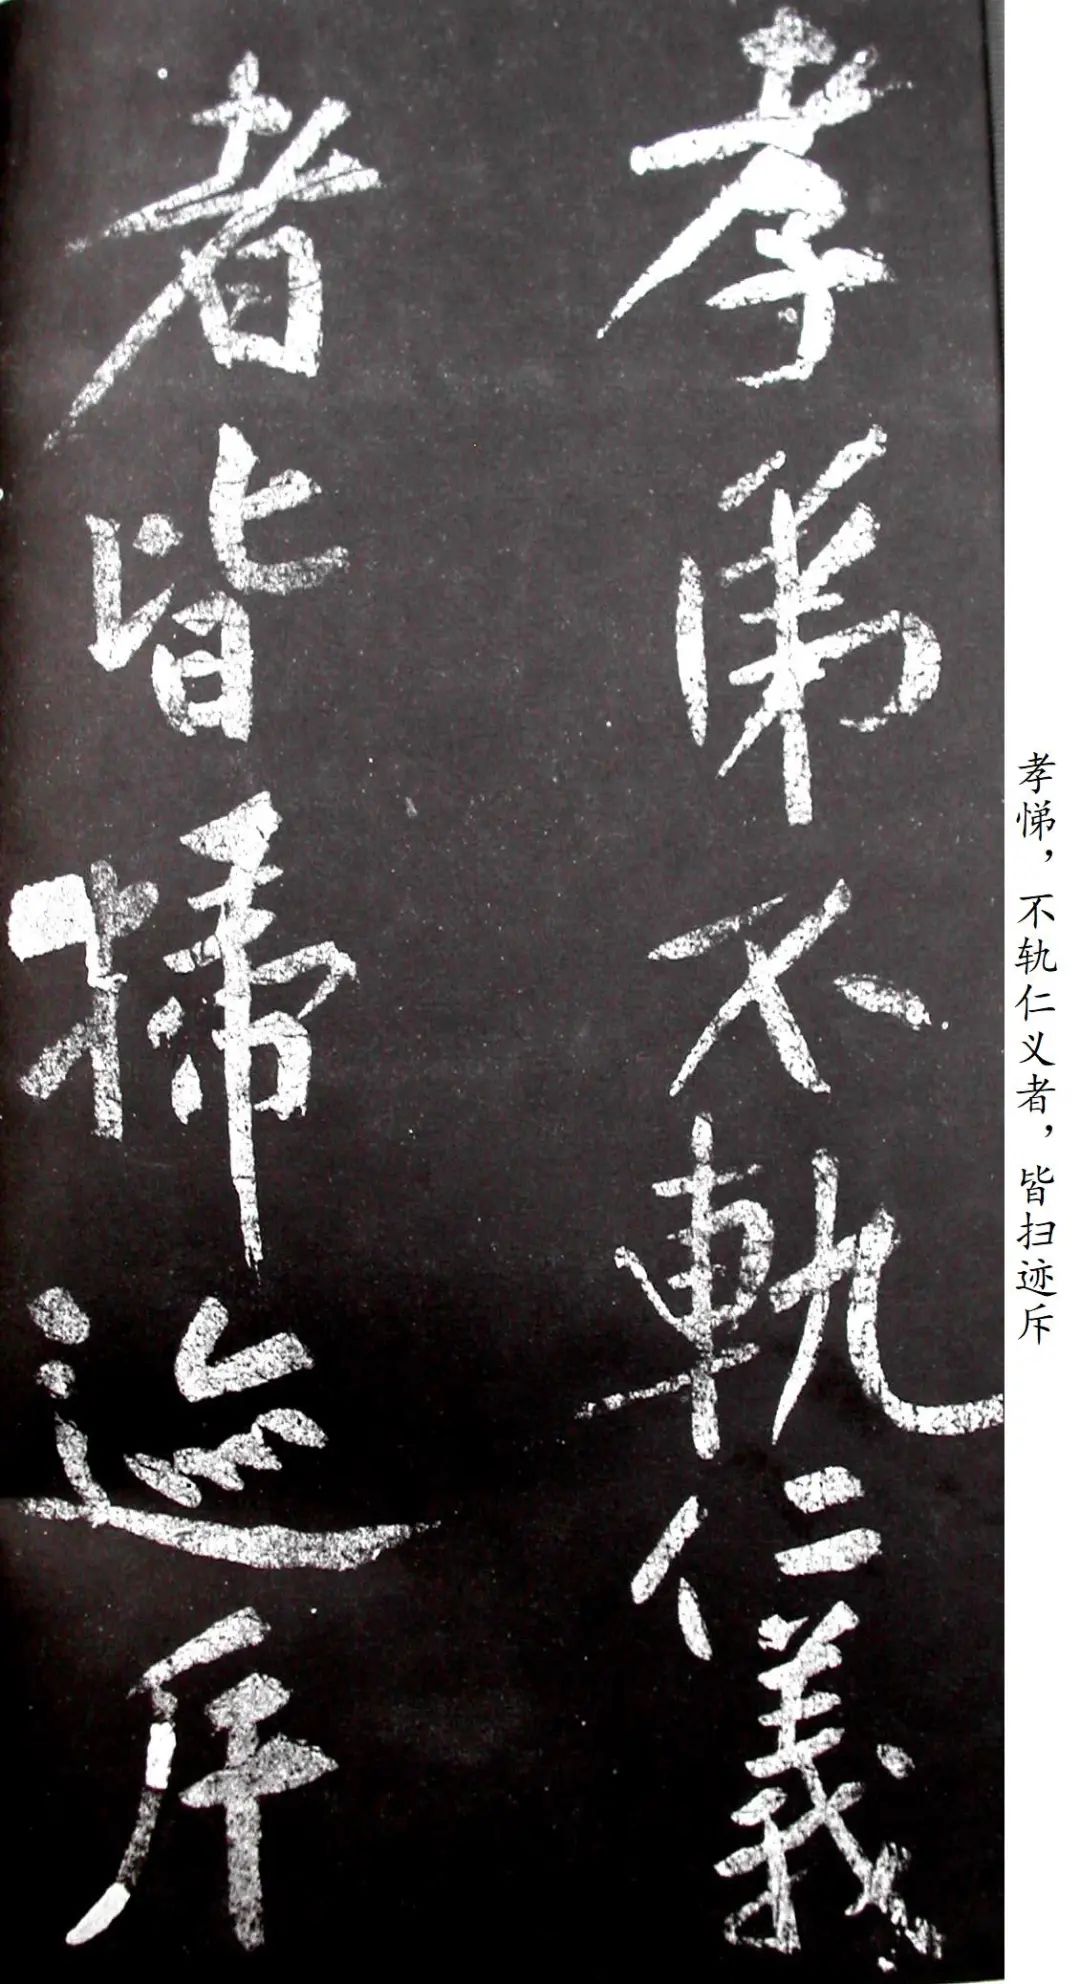 孝弟不軌仁義
者皆掃迹斥
孝悌，不轨仁义者，皆扫迹斥